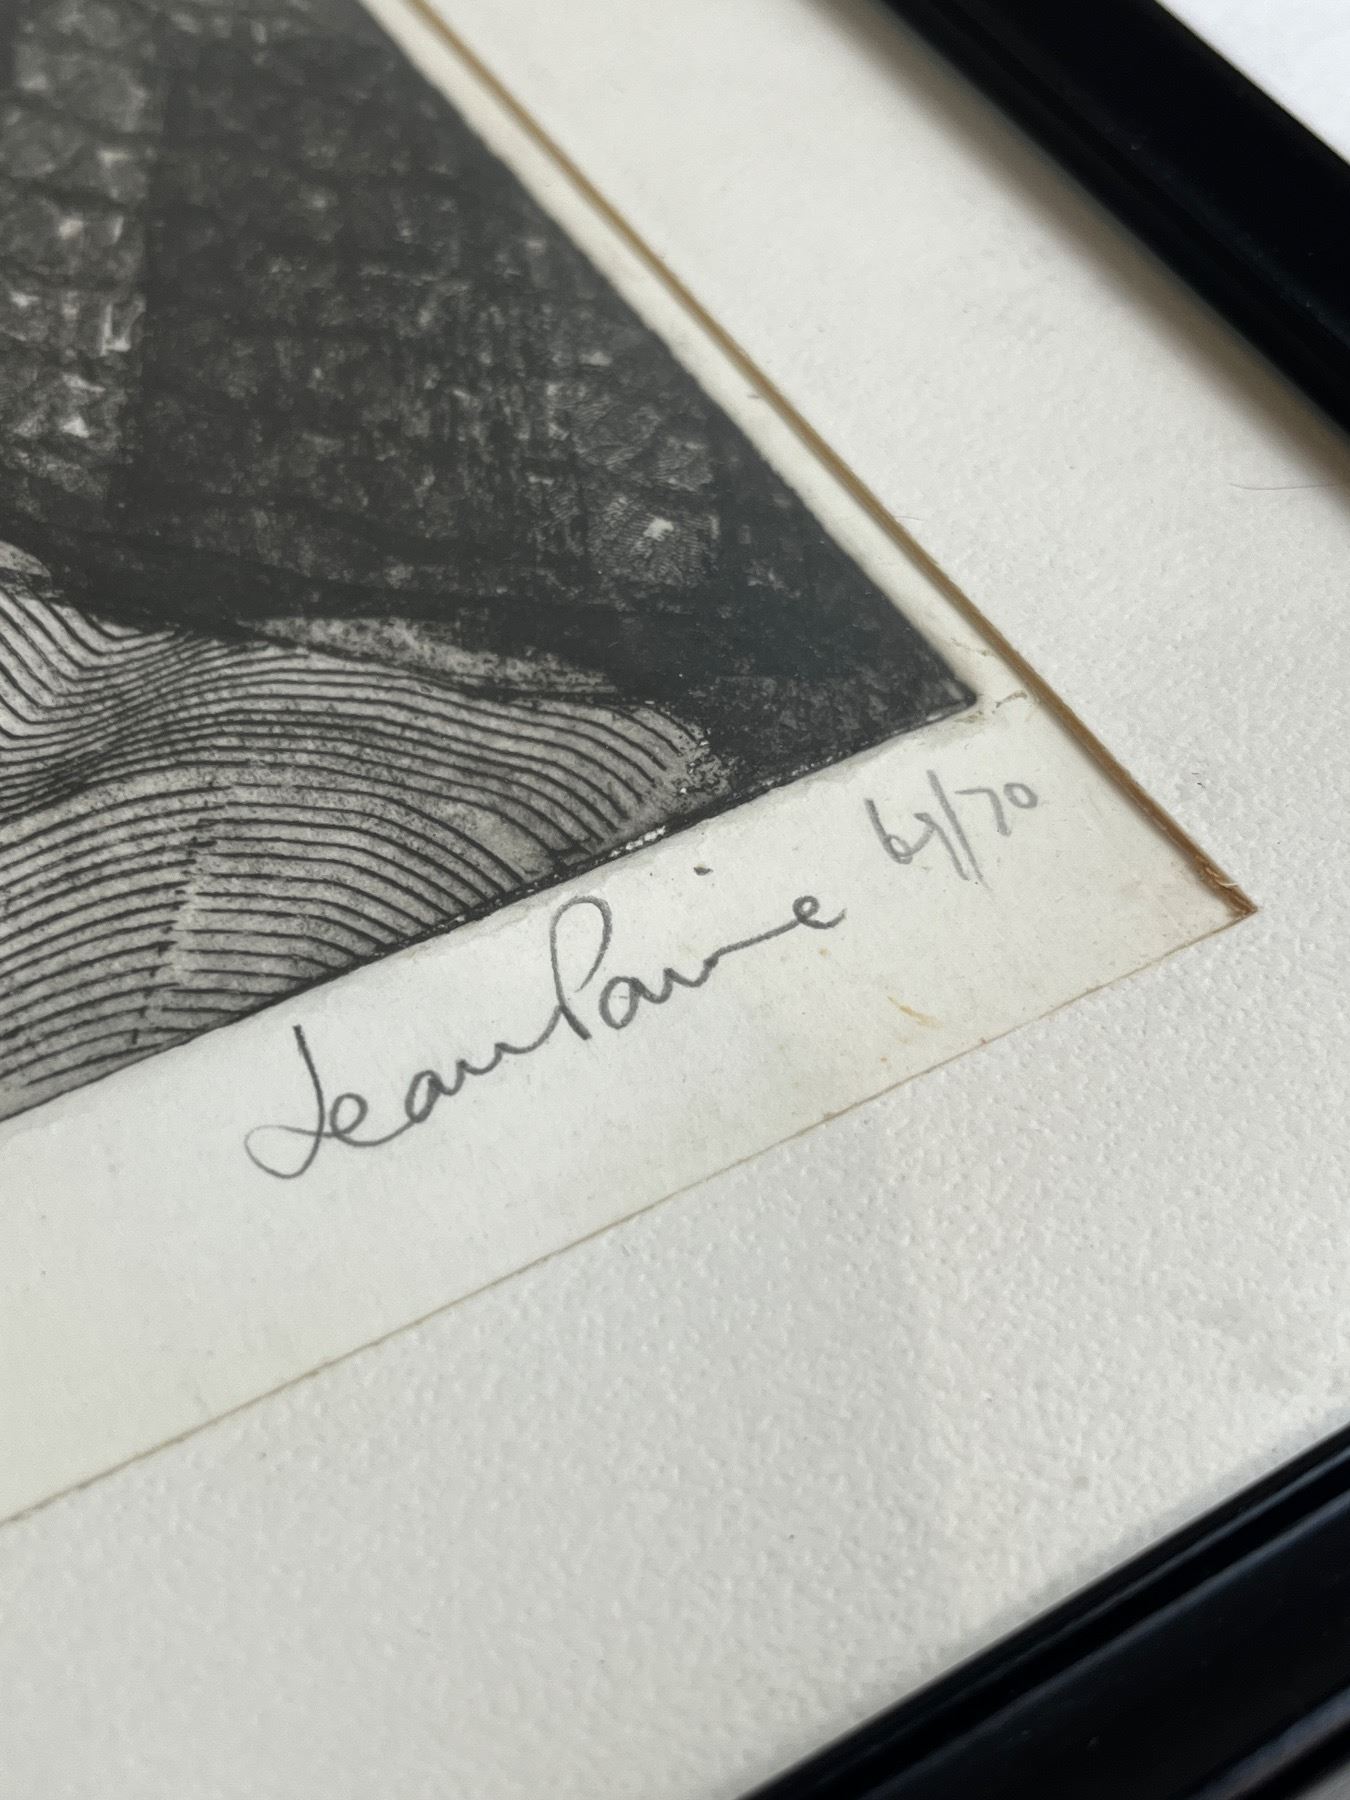 Jean Paine 69/70